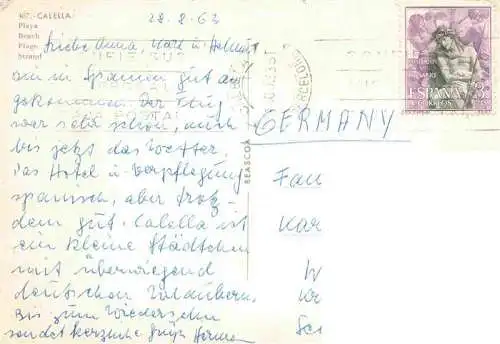 407.-CALELLA
Playa
Beach
Plage
Strand
28.8.63
Liebe Anna, Karl u. Helmut
bin in Spanien gut an
gekommen. Der Flug
war sehr schön, auch
bis jetzt das Wetter.
Das Hotel u. Verpflegung
spanisch, aber trotz-
dem gut. Calella ist
ein kleine Städtchen
mit überwiegend
deutschen Urlaubern.
Bis zum Wiedersehn
sendet herzliche Grüße Herman
BEASCOA
GERMANY
Fam
Kar
W
Kr
ESPAÑA
CORREOS
BARCELONA